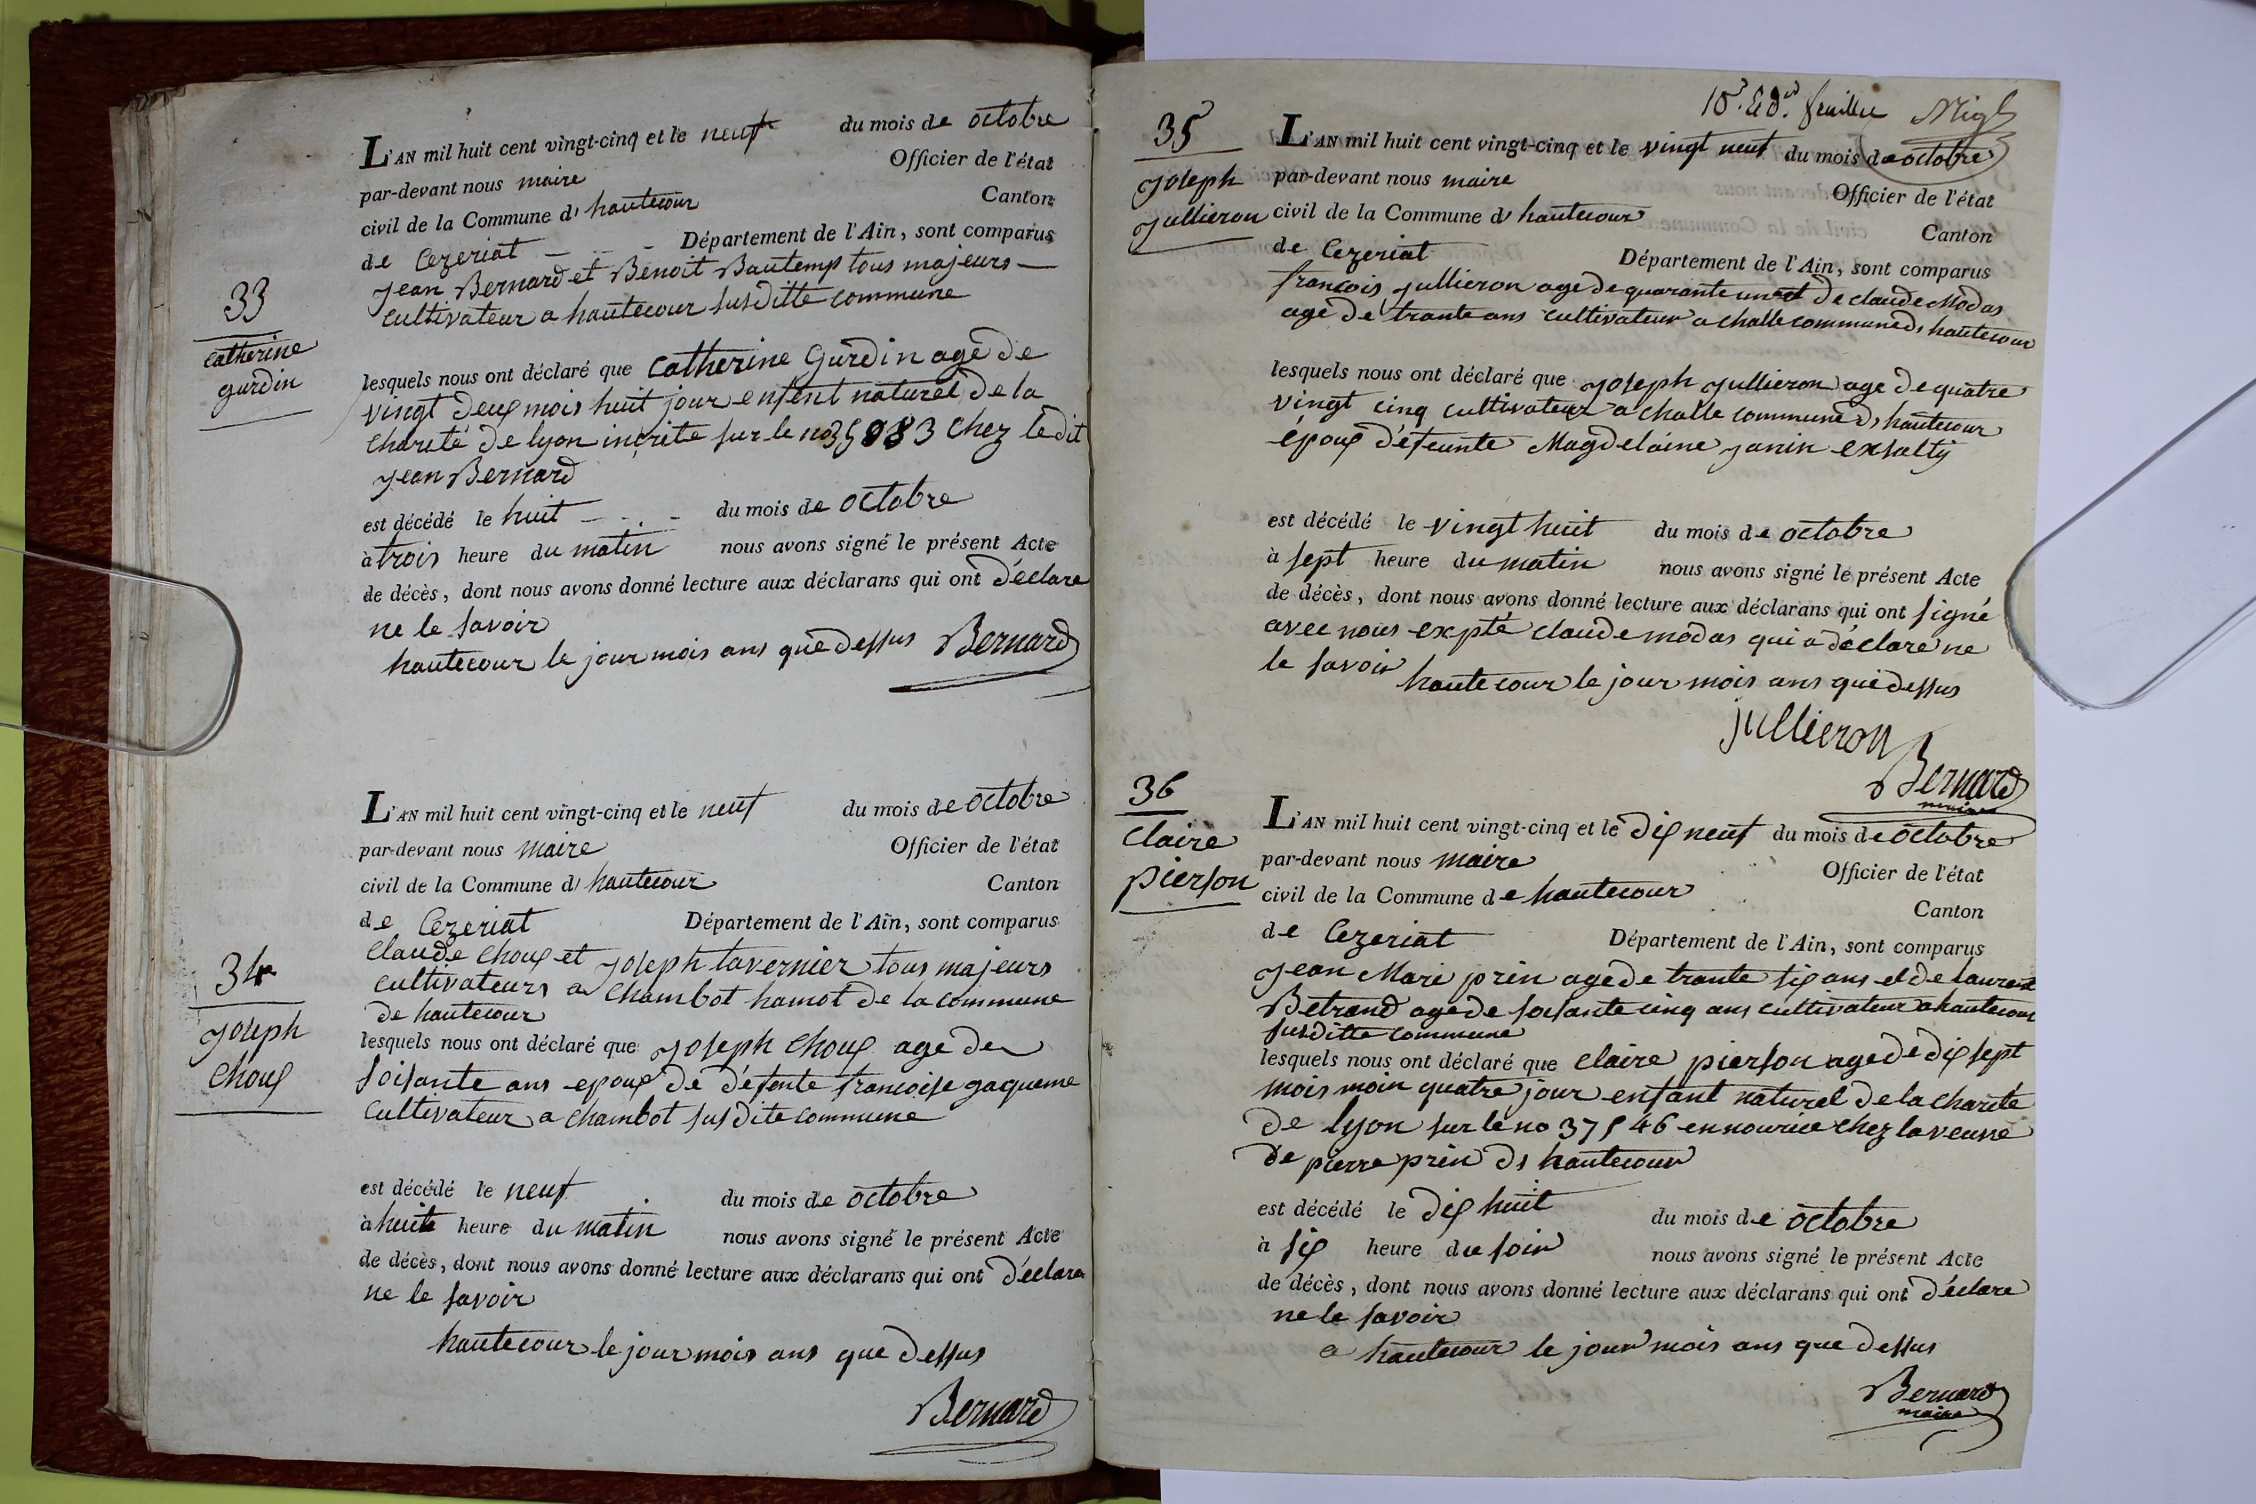 L'AN mil huit cent vingt-cinq et le neuf du mois de octobre
par-devant nous maire Officier de l'état
civil de la Commune d' hautecour Canton
de Cezeriat Département de l'Ain, sont comparus
33
catherine
gurdin
jean Bernard et Benoit Bautemp tous majeurs
cultivateur a hautecour susditte commune
lesquels nous ont déclaré que catherine Gurdin agé de
vingt deux mois huit jour enfent naturel de la
chareté de lyon incrite sur le no 35983 chez ledit
jean Bernard
est décédé le huit du mois de octobre
à trois heure du matin nous avons signé le présent Acte
de décès, dont nous avons donné lecture aux déclarans qui ont déclare
ne le savoir
hautecour le jour mois ans que dessus Bernard
L'AN mil huit cent vingt-cinq et le neuf du mois de octobre
par-devant nous maire Officier de l'état
civil de la Commune d' hautecour Canton
de Cezeriat Département de l'Ain, sont comparus
34
joseph
choux
claude choux et joseph tavernier tous majeurs
cultivateurs a chambot hamot de la commune
de hautecour
lesquels nous ont déclaré que joseph choux age de
soisante ans epoux de défente francoise gaqueme
cultivateur a chambot susdite commune
est décédé le neuf du mois de octobre
à huit heure du matin nous avons signé le présent Acte
de décès, dont nous avons donné lecture aux déclarans qui ont déclare
ne le savoir
hautecour le jour mois ans que dessus
Bernard
feuillie
35
joseph
jullieron
L'AN mil huit cent vingt-cinq et le vingt neuf du mois de octobre
par-devant nous maire Officier de l'état
civil de la Commune d' hautecour Canton
de Cezeriat Département de l'Ain, sont comparus
francois jullieron age de quarante un et de claude Modas
agé de trante ans cultivateur a challe commune d' hautecour
lesquels nous ont déclaré que joseph jullieron age de quatre
vingt cinq cultivateur a challe commune d' hautecour
époux défeunte Magdelaine janin
est décédé le vingt huit du mois de octobre
à sept heure du matin nous avons signé le présent Acte
de décès, dont nous avons donné lecture aux déclarans qui ont signé
avec nous expté claude modas qui a déclaré ne
le savoir
hautecour le jour mois ans que dessus
jullieron
Bernard
maire
36
claire
pierson
L'AN mil huit cent vingt-cinq et le dix neuf du mois de octobre
par-devant nous maire Officier de l'état
civil de la Commune de hautecour Canton
de Cezeriat Département de l'Ain, sont comparus
jean Marie prin age de trante six ans et de laurent
Betrand age de soisante cinq ans cultivateur a hautecour
susditte commune
lesquels nous ont déclaré que claire pierson age de dix sept
mois moin quatre jour enfant naturel de la charité
de lyon sur le no 37546 en nourice chez la veuve
de pierre prin d' hautecour
est décédé le dix huit du mois de octobre
à six heure du soir nous avons signé le présent Acte
de décès, dont nous avons donné lecture aux déclarans qui ont déclare
ne le savoir
a hautecour le jour mois ans que dessus
Bernard
maire